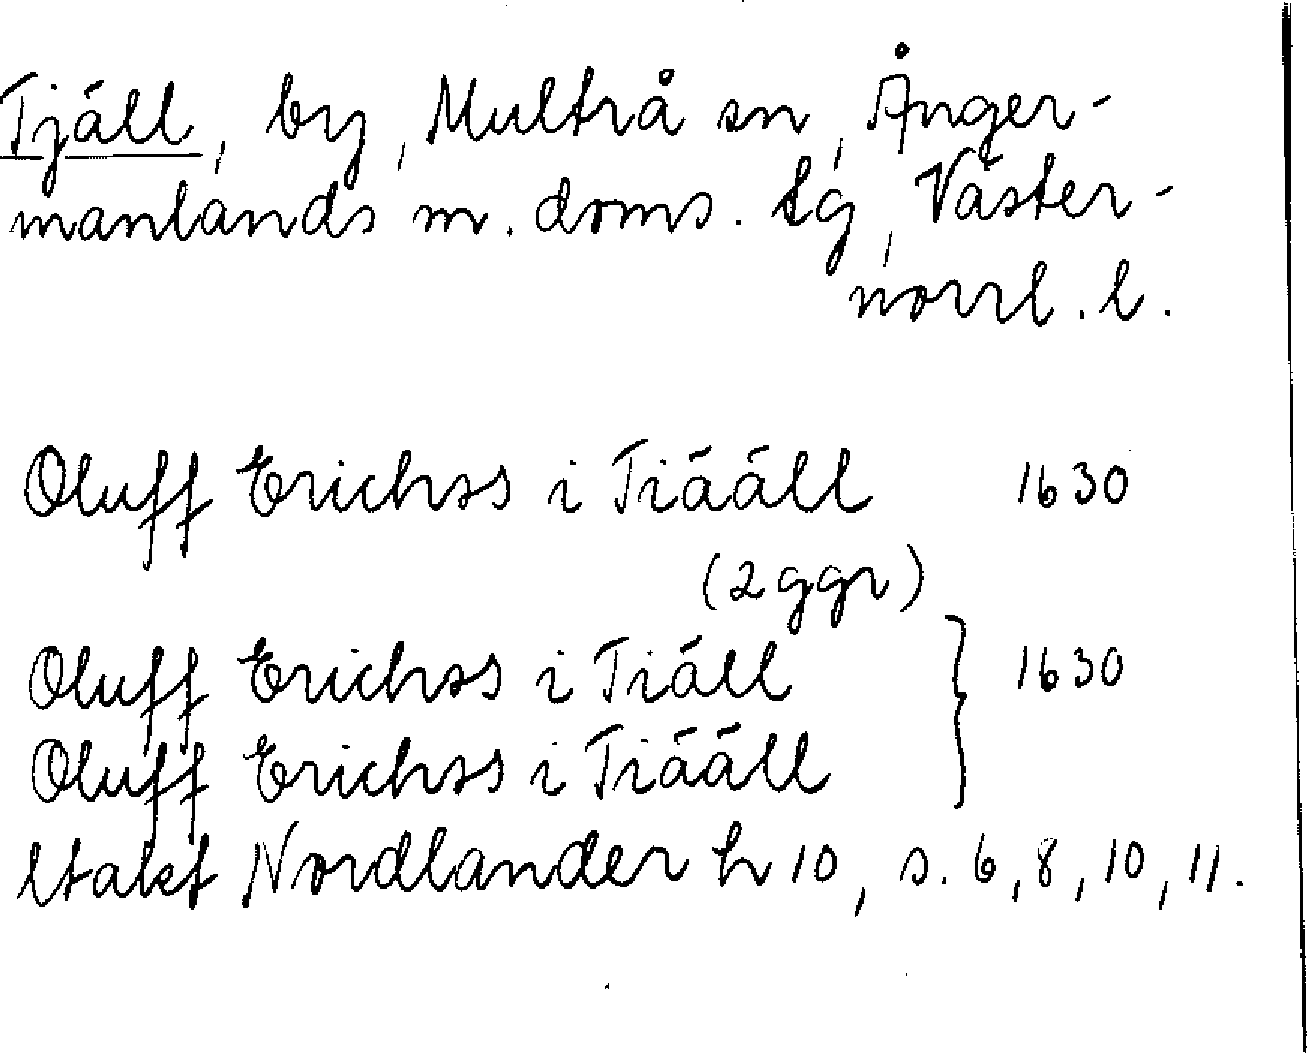 Tjäll, by, Multrå sn, Ånger-
manlands m. doms. tg, Väster-
norrl. l.
Oluff Erichss i Tiääll 1630
(2 ggr)
Oluff Erichss i Tiäll } 1630
Oluff Erichss i Tiääll
Utakt Nordlander h 10, s. 6, 8, 10, 11.